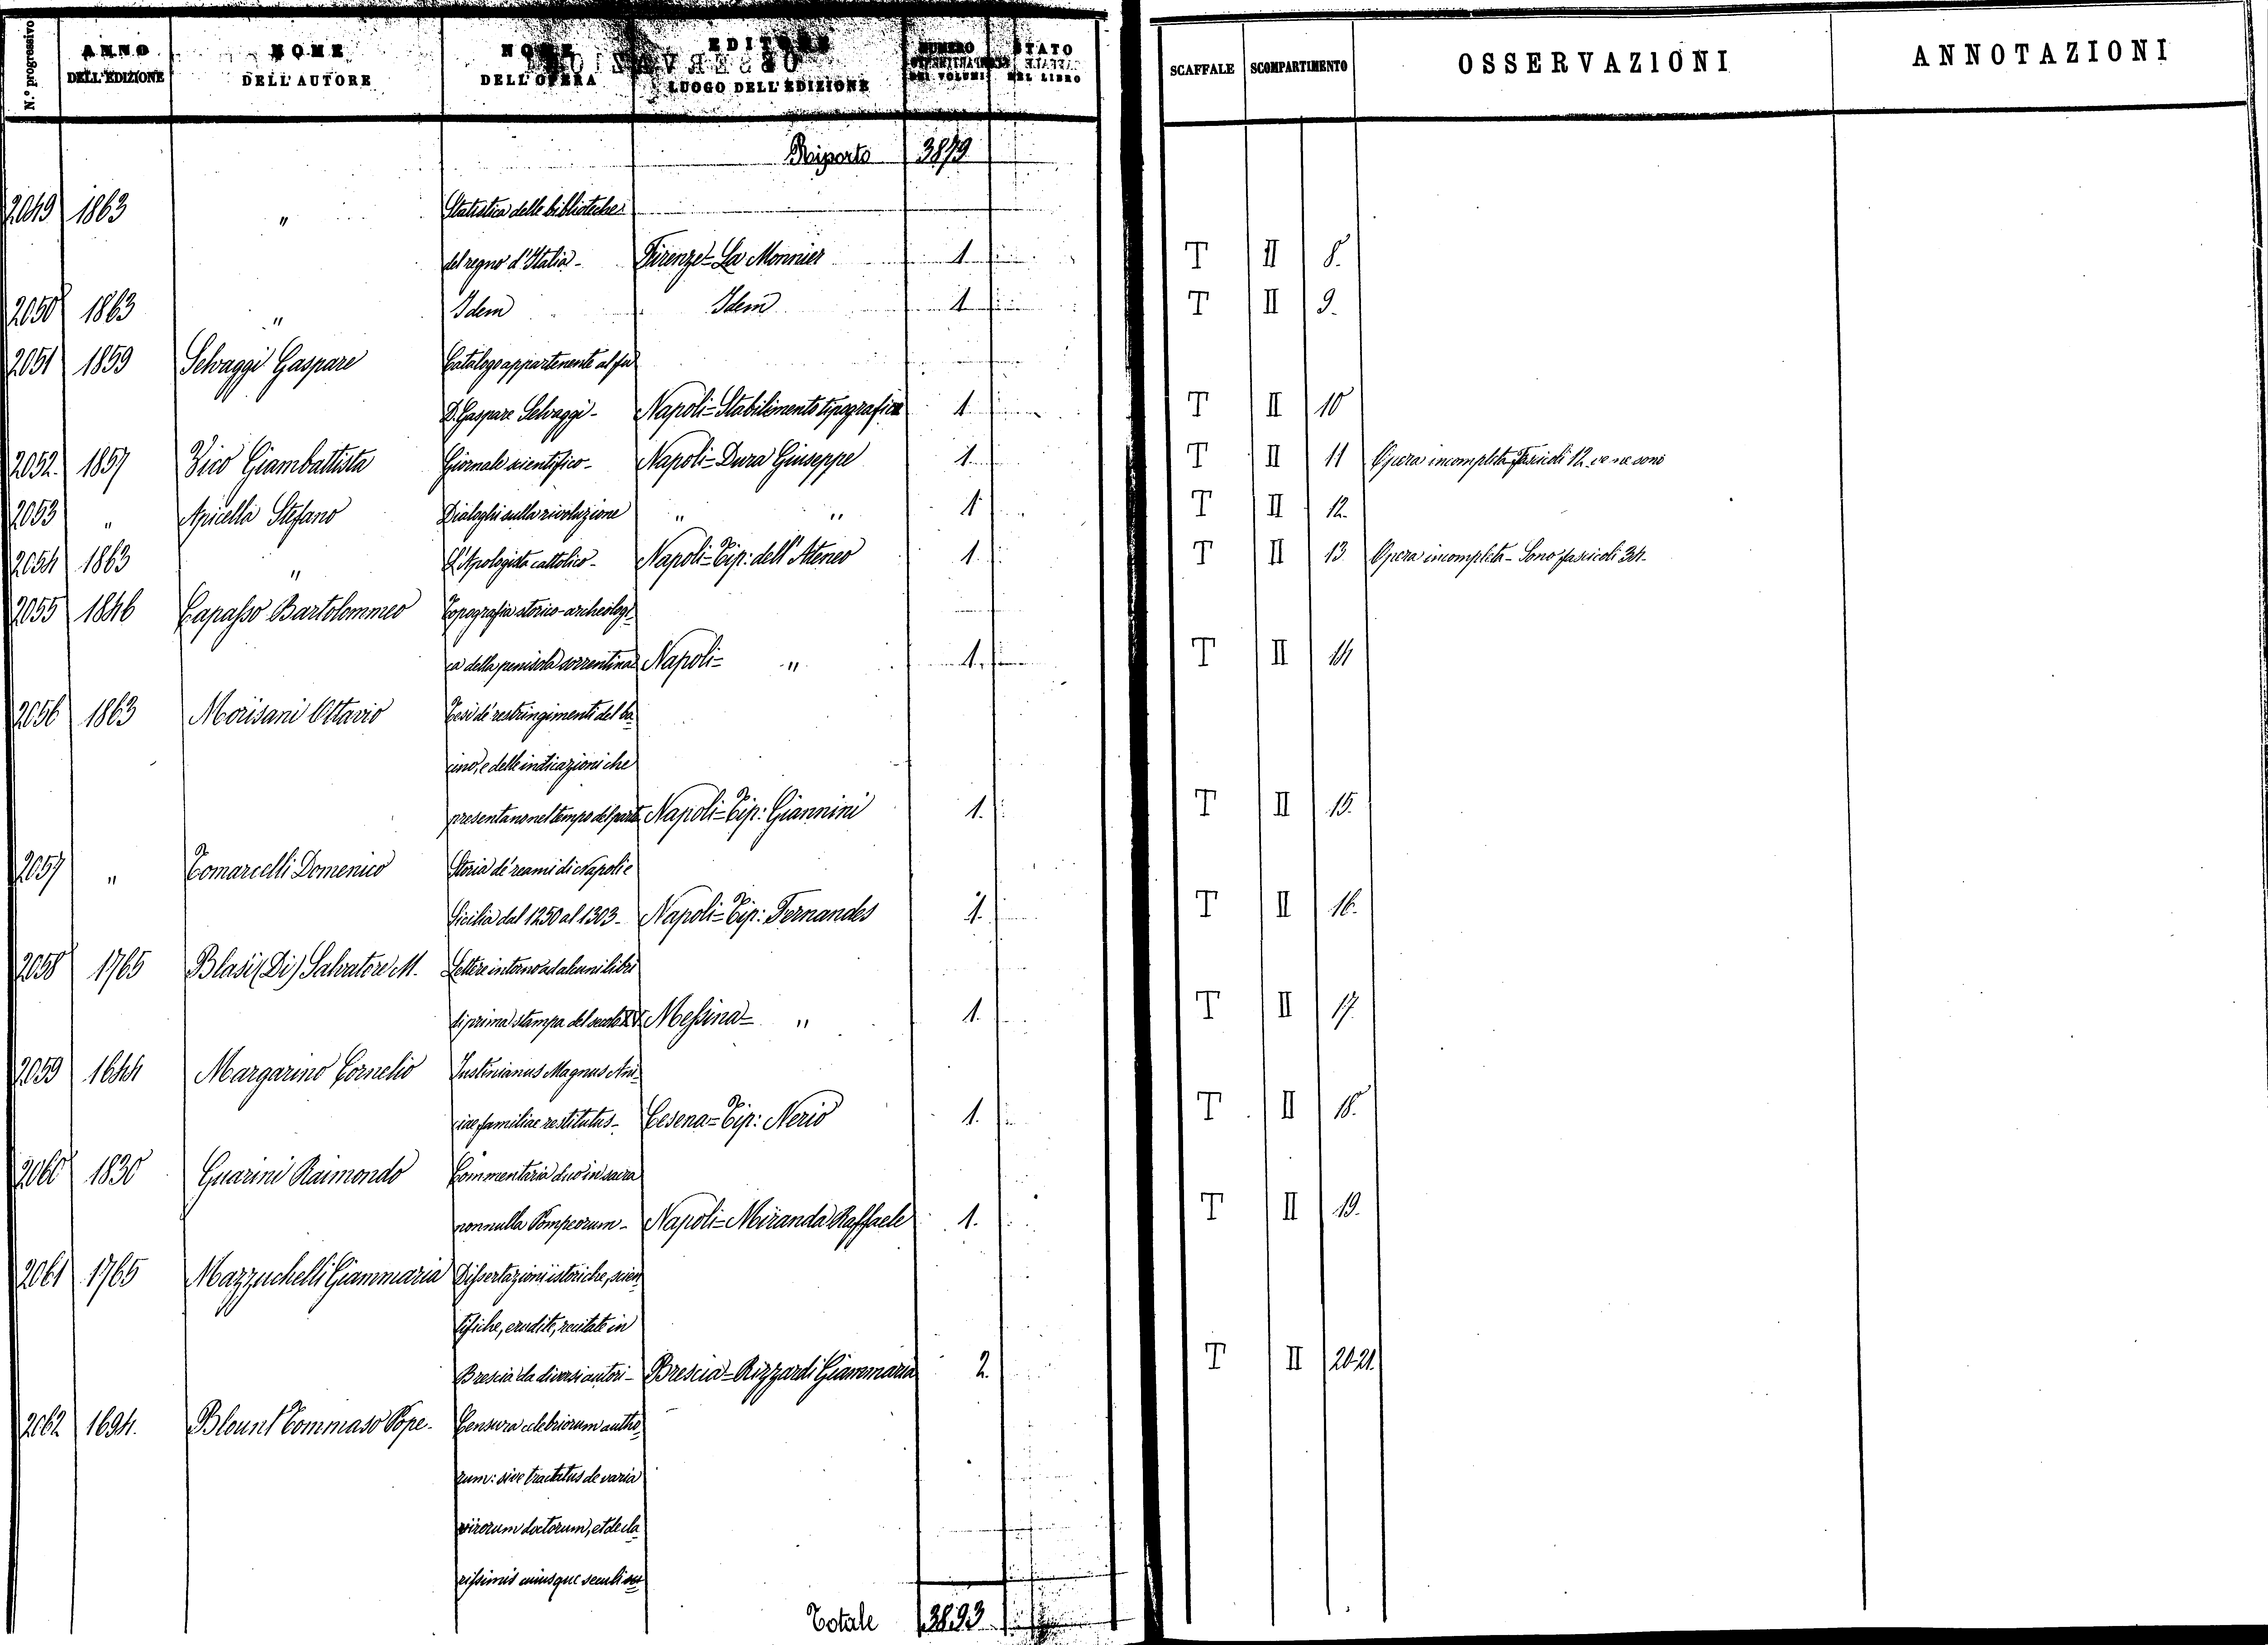 N.º progressivo ANNO DELL'EDIZIONE NOME DELL'AUTORE NOME DELL'OPERA EDITORE LUOGO DELL'EDIZIONE NUMERO DEI VOLUMI STATO DEL LIBRO SCAFFALE SCOMPARTIMENTO OSSERVAZIONI ANNOTAZIONI
Riporto 3879
2049 1863 " Statistica delle biblioteche
del regno d'Italia - Firenze = La Monnier 1 T II 8.
2050 1863 " Idem Idem 1 T II 9.
2051 1859 Selvaggi Gaspare Catalogo appartenente al fu
D. Gaspare Selvaggi - Napoli = Stabilimento tipografico 1 T II 10
2052. 1857 Vico Giambattista Giornale scientifico - Napoli = Dura Giuseppe 1 T II 11 Opera incompleta fascicoli 12 ve ne sono
2053 " Apicella Stefano Dialoghi sulla rivoluzione " " 1 T II 12.
2054 1863 " L'Apologista cattolico - Napoli = Tip: dell'Ateneo 1. T II 13 Opera incompleta - Sono fascicoli 34.
2055 1846 Capasso Bartolommeo Topografia storico-archeologi=
ca della penisola sorrentina Napoli = " 1. T II 14
2056 1863 Morisani Ottavio Tesi de' restringimenti del ba=
cino, e delle indicazioni che
presentano nel tempo del parto Napoli = Tip: Giannini 1. T II 15.
2057 " Tomarcelli Domenico Storia de' reami di Napoli e
Sicilia dal 1250 al 1303 - Napoli = Tip: Fernandes 1. T II 16.
2058 1765 Blasi (Di) Salvatore M. Lettere intorno ad alcuni libri
di prima stampa del secolo XV. Messina = " 1. T II 17.
2059 1644 Margarino Cornelio Iustinianus Magnus Ani=
ciae familiae restitutus - Cesena = Tip: Nerio 1. T II 18.
2060 1830 Guarini Raimondo Commentaria duo in sacra
nonnulla Pompeorum - Napoli = Miranda Raffaele 1. T II 19.
2061 1765 Mazzuchelli Giammaria Dissertazioni istoriche, scien=
tifiche, erudite, recitate in
Brescia da diversi autori - Brescia = Rizzardi Giammaria 2. T II 20-21.
2062 1694. Blount Tommaso Pope - Censura celebriorum autho=
rum: sive tractatus de varia
virorum doctorum, et de cla=
rissimis cuiusque seculi
Totale 3893